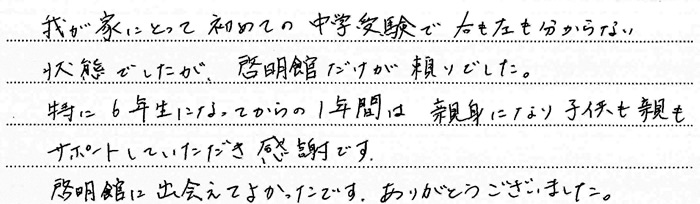 我が家にとって初めての中学受験で右も左も分からない
状態でしたが、啓明館だけが頼りでした。
特に6年生になってからの1年間は親身になり子供も親も
サポートしていただき感謝です。
啓明館に出会えてよかったです。ありがとうございました。